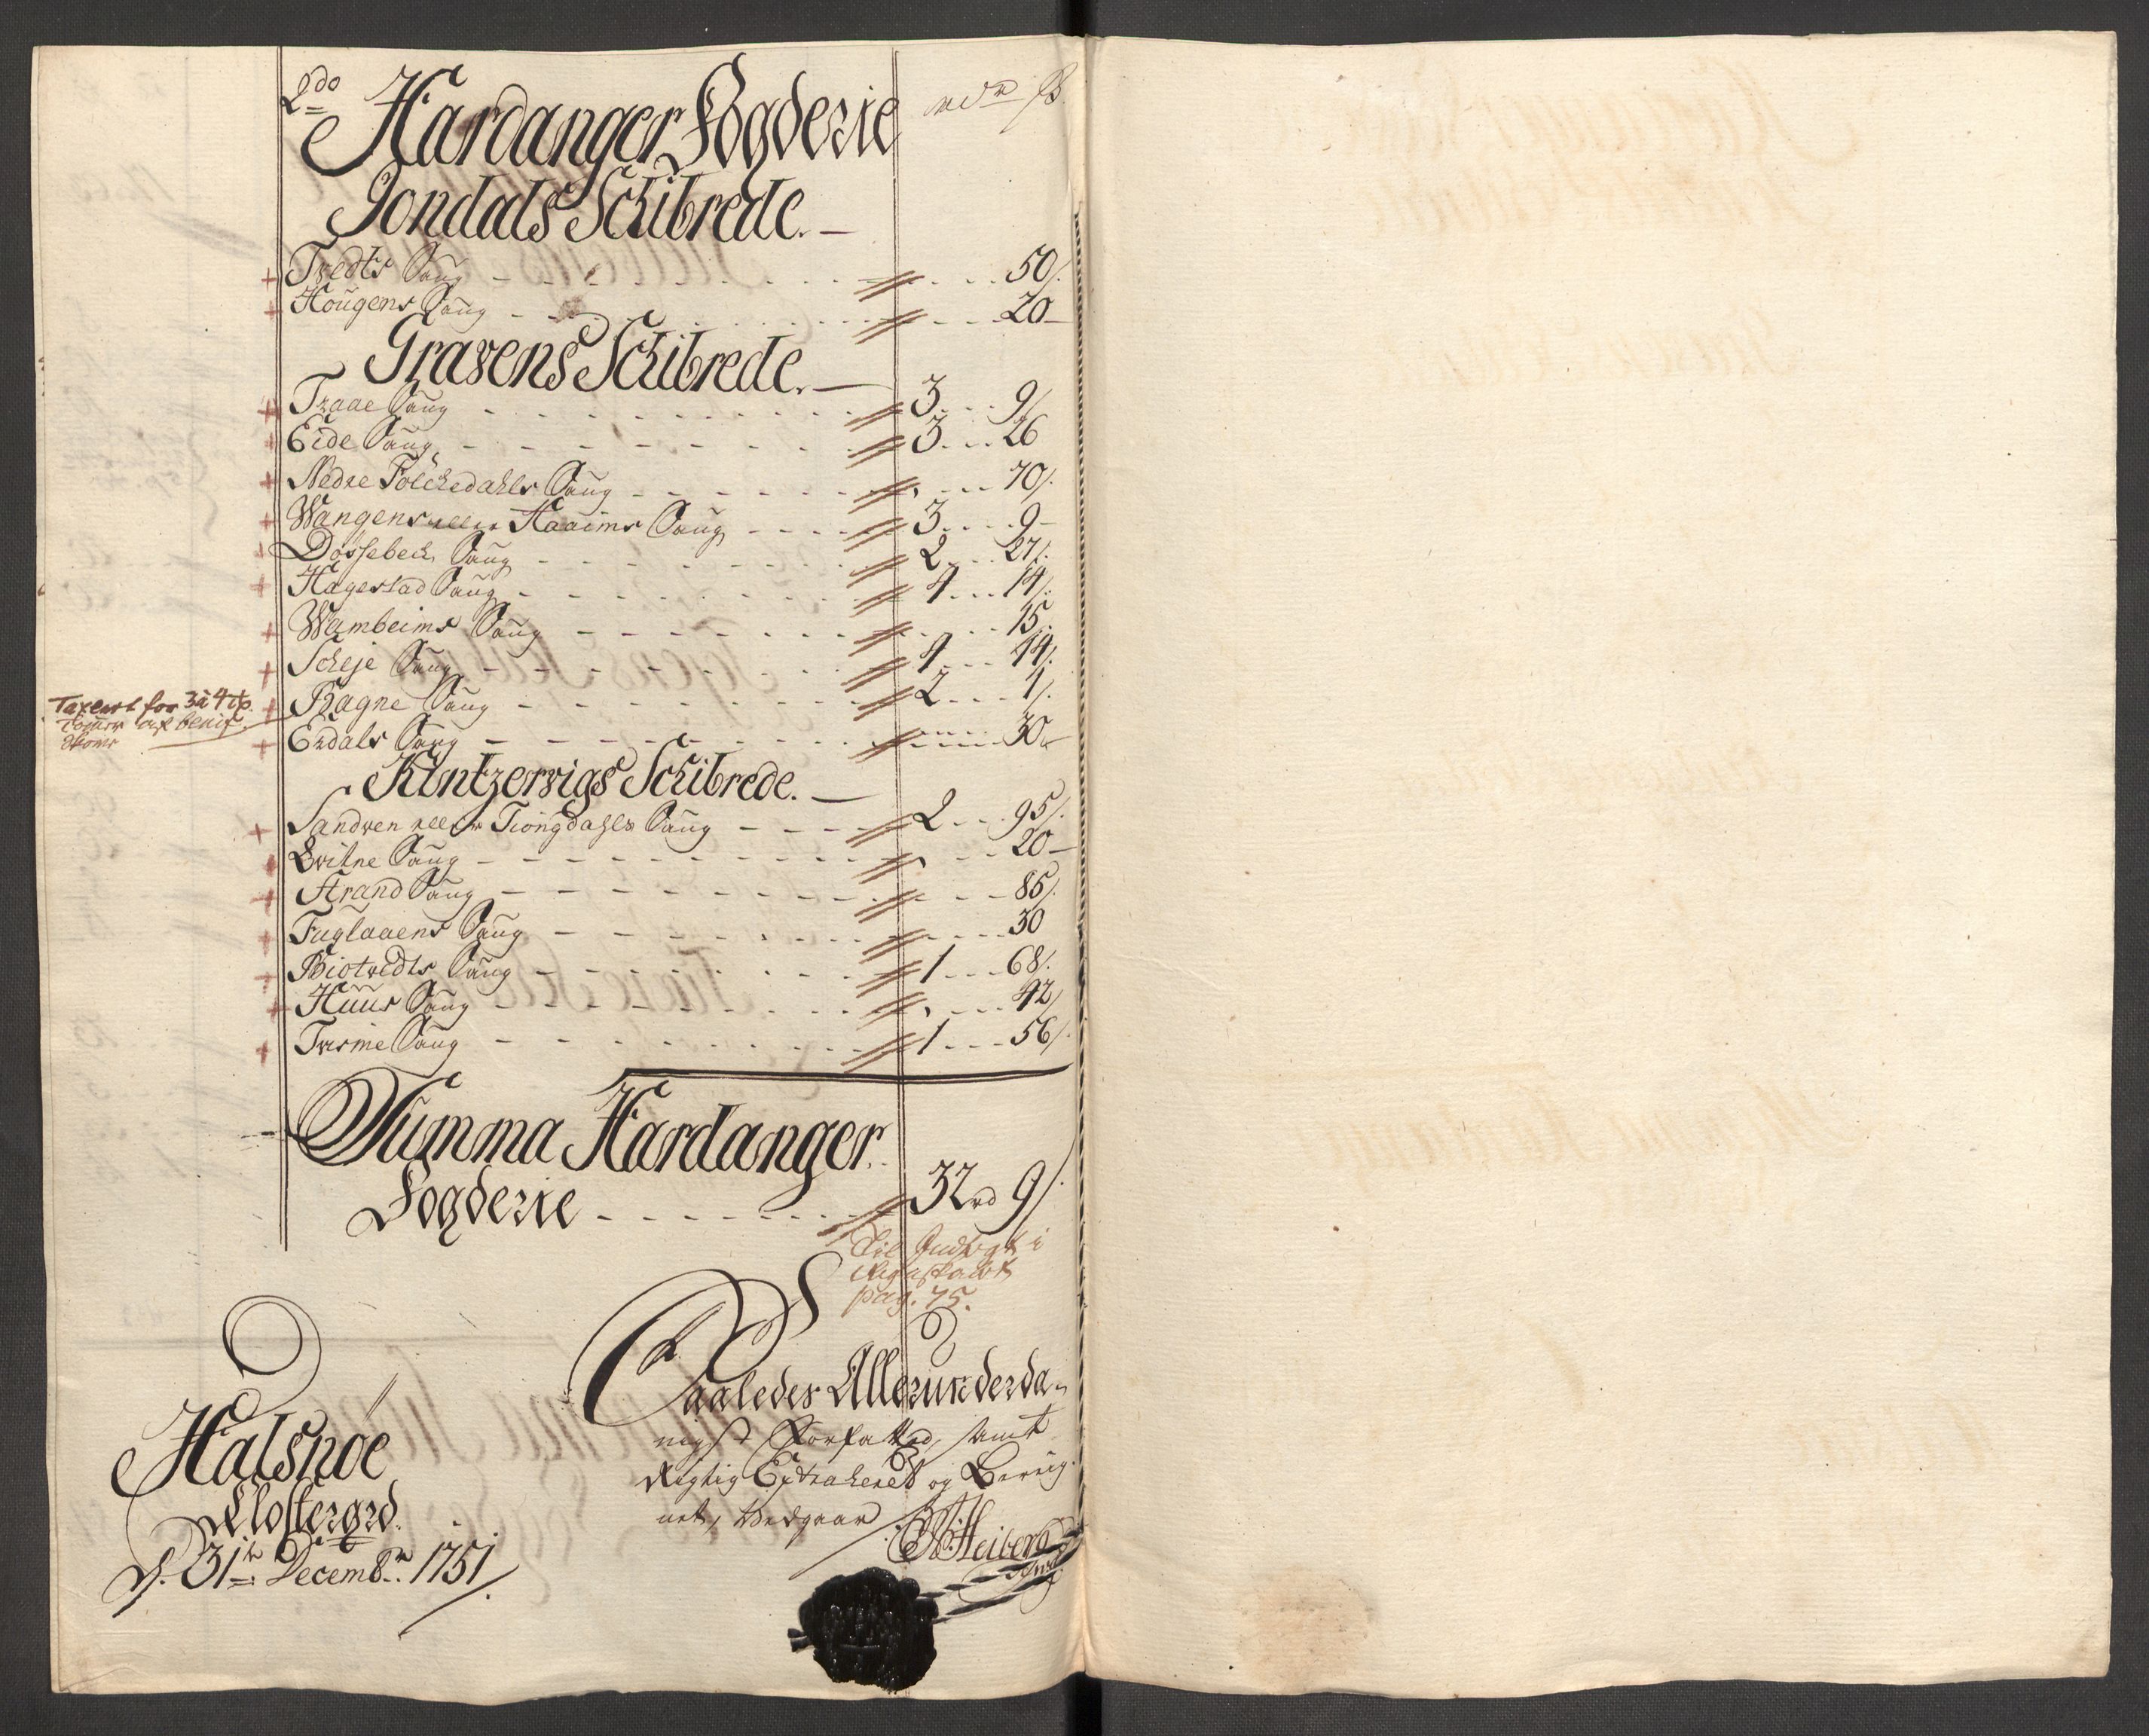 2do Hardanger Fogderie rdr ß
Jondals Schibrede.
Tvedts Saug 50/.
Hougens Saug 20
Gravens Schibrede.
Traae Saug 3 9/
Eide Saug 3 26
Nedre Folchedahls Saug 70/.
Wangens eller Haaims Saug 3 9
Dossebech Saug 2 27/.
Hagestad Saug 4 14/.
Wambeims Saug 15/.
Scheje Saug 4 44/.
Taxeret for 3 à 4
Ragne Saug 2 1/.
Erdals Saug 30
Kintzervigs Schibrede.
Sandven eller Tiongdahls Saug 2 95/.
Qvitne Saug 20
Strand Saug 85/.
Fuglaaens Saug 30
Biotvedts Saug 1 68/.
Huus Saug 42/
Tvisme Saug 1 56/.
Summa Hardanger
Fogderie 32 rd 9/.
Til Indtegt i
Regnskabet
pag. 75.
Saaledes Allerunderda-
nigst Forfatted, samt
Rigtig Extraheret og Bereig-
net, Vedgaar
Heiberg
Halsnøe
Klostergrd.
d. 31te Decembr. 1751